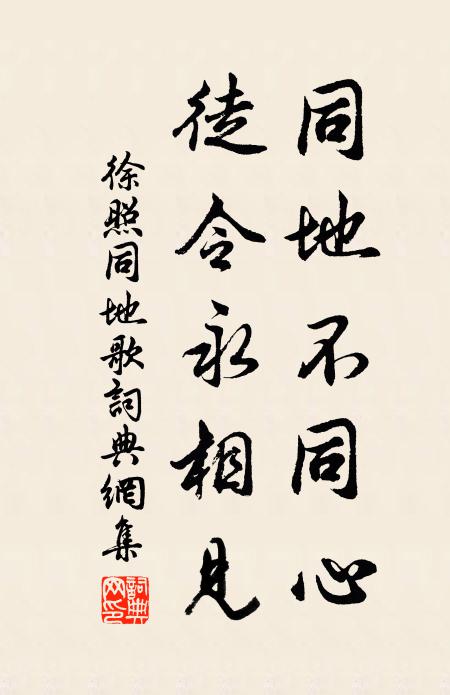 同地不同心
徒令永相見
徐照同地歌詞典網集
詞典网印